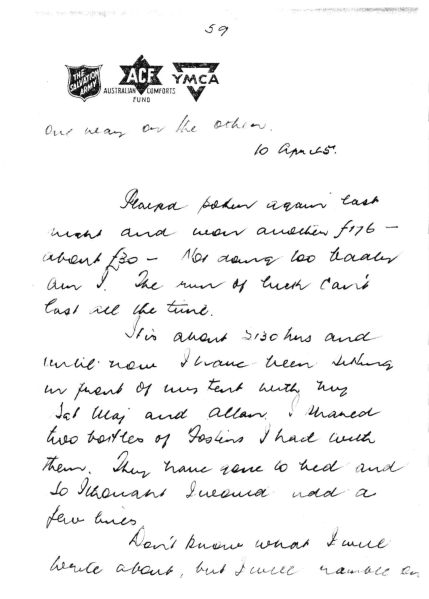 59
THE SALVATION ARMY
ACF
AUSTRALIAN COMFORTS FUND
YMCA
One way or the other.
10 April 45.
Played poker again last
night and won another f176 –
about £30 – Not doing too badly
am I. The run of luck can't
last all the time.
It is about 2130 hrs and
until now I have been sitting
in front of my tent with my
Sgt Maj and Allan, I shared
two bottles of Fosters I had with
them. They have gone to bed and
so I thought I would add a
few lines
Don't know what I will
write about, but I will ramble on